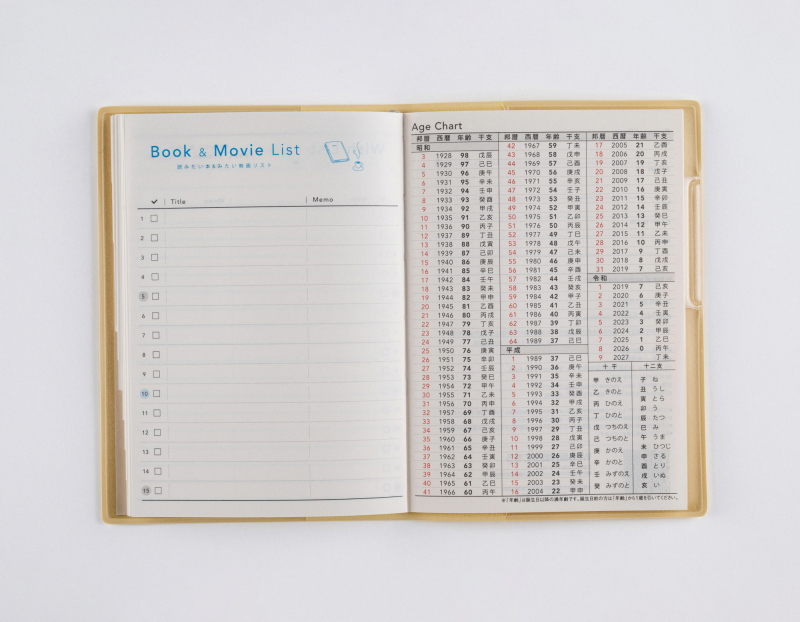 Book & Movie List
読みたい本&みたい映画リスト
✓ Title Memo
1
2
3
4
5
6
7
8
9
10
11
12
13
14
15
Age Chart
邦暦 西暦 年齢 干支
昭和
3 1928 98 戊辰
4 1929 97 己巳
5 1930 96 庚午
6 1931 95 辛未
7 1932 94 壬申
8 1933 93 癸酉
9 1934 92 甲戌
10 1935 91 乙亥
11 1936 90 丙子
12 1937 89 丁丑
13 1938 88 戊寅
14 1939 87 己卯
15 1940 86 庚辰
16 1941 85 辛巳
17 1942 84 壬午
18 1943 83 癸未
19 1944 82 甲申
20 1945 81 乙酉
21 1946 80 丙戌
22 1947 79 丁亥
23 1948 78 戊子
24 1949 77 己丑
25 1950 76 庚寅
26 1951 75 辛卯
27 1952 74 壬辰
28 1953 73 癸巳
29 1954 72 甲午
30 1955 71 乙未
31 1956 70 丙申
32 1957 69 丁酉
33 1958 68 戊戌
34 1959 67 己亥
35 1960 66 庚子
36 1961 65 辛丑
37 1962 64 壬寅
38 1963 63 癸卯
39 1964 62 甲辰
40 1965 61 乙巳
41 1966 60 丙午
邦暦 西暦 年齢 干支
42 1967 59 丁未
43 1968 58 戊申
44 1969 57 己酉
45 1970 56 庚戌
46 1971 55 辛亥
47 1972 54 壬子
48 1973 53 癸丑
49 1974 52 甲寅
50 1975 51 乙卯
51 1976 50 丙辰
52 1977 49 丁巳
53 1978 48 戊午
54 1979 47 己未
55 1980 46 庚申
56 1981 45 辛酉
57 1982 44 壬戌
58 1983 43 癸亥
59 1984 42 甲子
60 1985 41 乙丑
61 1986 40 丙寅
62 1987 39 丁卯
63 1988 38 戊辰
64 1989 37 己巳
平成
1 1989 37 己巳
2 1990 36 庚午
3 1991 35 辛未
4 1992 34 壬申
5 1993 33 癸酉
6 1994 32 甲戌
7 1995 31 乙亥
8 1996 30 丙子
9 1997 29 丁丑
10 1998 28 戊寅
11 1999 27 己卯
12 2000 26 庚辰
13 2001 25 辛巳
14 2002 24 壬午
15 2003 23 癸未
16 2004 22 甲申
邦暦 西暦 年齢 干支
17 2005 21 乙酉
18 2006 20 丙戌
19 2007 19 丁亥
20 2008 18 戊子
21 2009 17 己丑
22 2010 16 庚寅
23 2011 15 辛卯
24 2012 14 壬辰
25 2013 13 癸巳
26 2014 12 甲午
27 2015 11 乙未
28 2016 10 丙申
29 2017 9 丁酉
30 2018 8 戊戌
31 2019 7 己亥
令和
1 2019 7 己亥
2 2020 6 庚子
3 2021 5 辛丑
4 2022 4 壬寅
5 2023 3 癸卯
6 2024 2 甲辰
7 2025 1 乙巳
8 2026 0 丙午
9 2027 丁未
十 干
甲 きのえ
乙 きのと
丙 ひのえ
丁 ひのと
戊 つちのえ
己 つちのと
庚 かのえ
辛 かのと
壬 みずのえ
癸 みずのと
十二支
子 ね
丑 うし
寅 とら
卯 う
辰 たつ
巳 み
午 うま
未 ひつじ
申 さる
酉 とり
戌 いぬ
亥 い
※「年齢」は誕生日以降の満年齢です。誕生日前の方は「年齢」から1歳を引いてください。